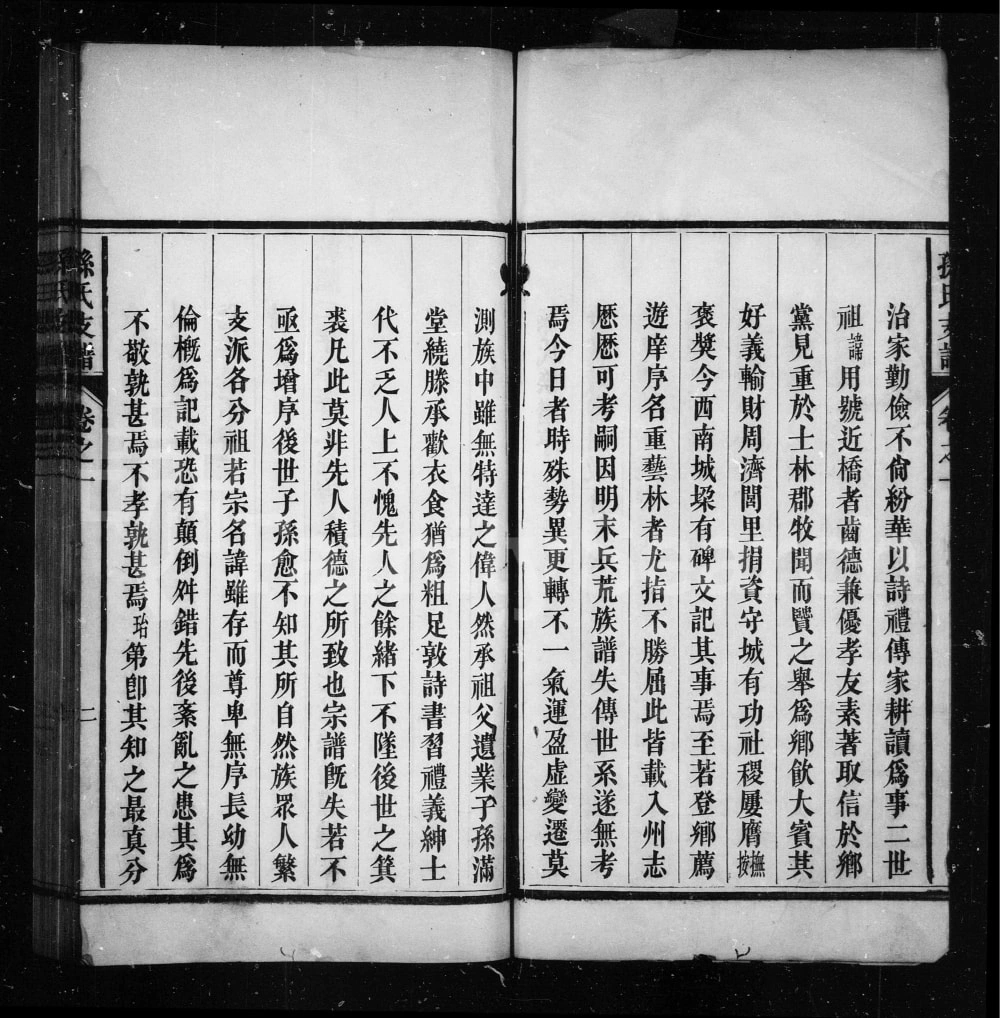 治家勤儉不尙紛華以詩禮傳家耕讀爲事二世
祖諱用號近橋者齒德兼優孝友素著取信於鄉
黨見重於士林郡牧聞而賢之舉爲鄉飮大賓其
好義輸財周濟閭里捐資守城有功社稷屢膺撫按
褒獎今西南城垜有碑文記其事焉至若登鄉薦
遊庠序名重藝林者尤指不勝屈此皆載入州志
歷歷可考嗣因明末兵荒族譜失傳世系遂無考
焉今日者時殊勢異更轉不一氣運盈虛變遷莫
測族中雖無特達之偉人然承祖父遺業子孫滿
堂繞膝承歡衣食猶爲粗足敦詩書習禮義紳士
代不乏人上不愧先人之餘緒下不墜後世之箕
裘凡此莫非先人積德之所致也宗譜旣失若不
亟爲增序後世子孫愈不知其所自然族眾人繁
支派各分祖若宗名諱雖存而尊卑無序長幼無
倫槪爲記載恐有顛倒舛錯先後紊亂之患其爲
不敬孰甚焉不孝孰甚焉珆第卽其知之最真分
孫氏支譜
卷之一
二